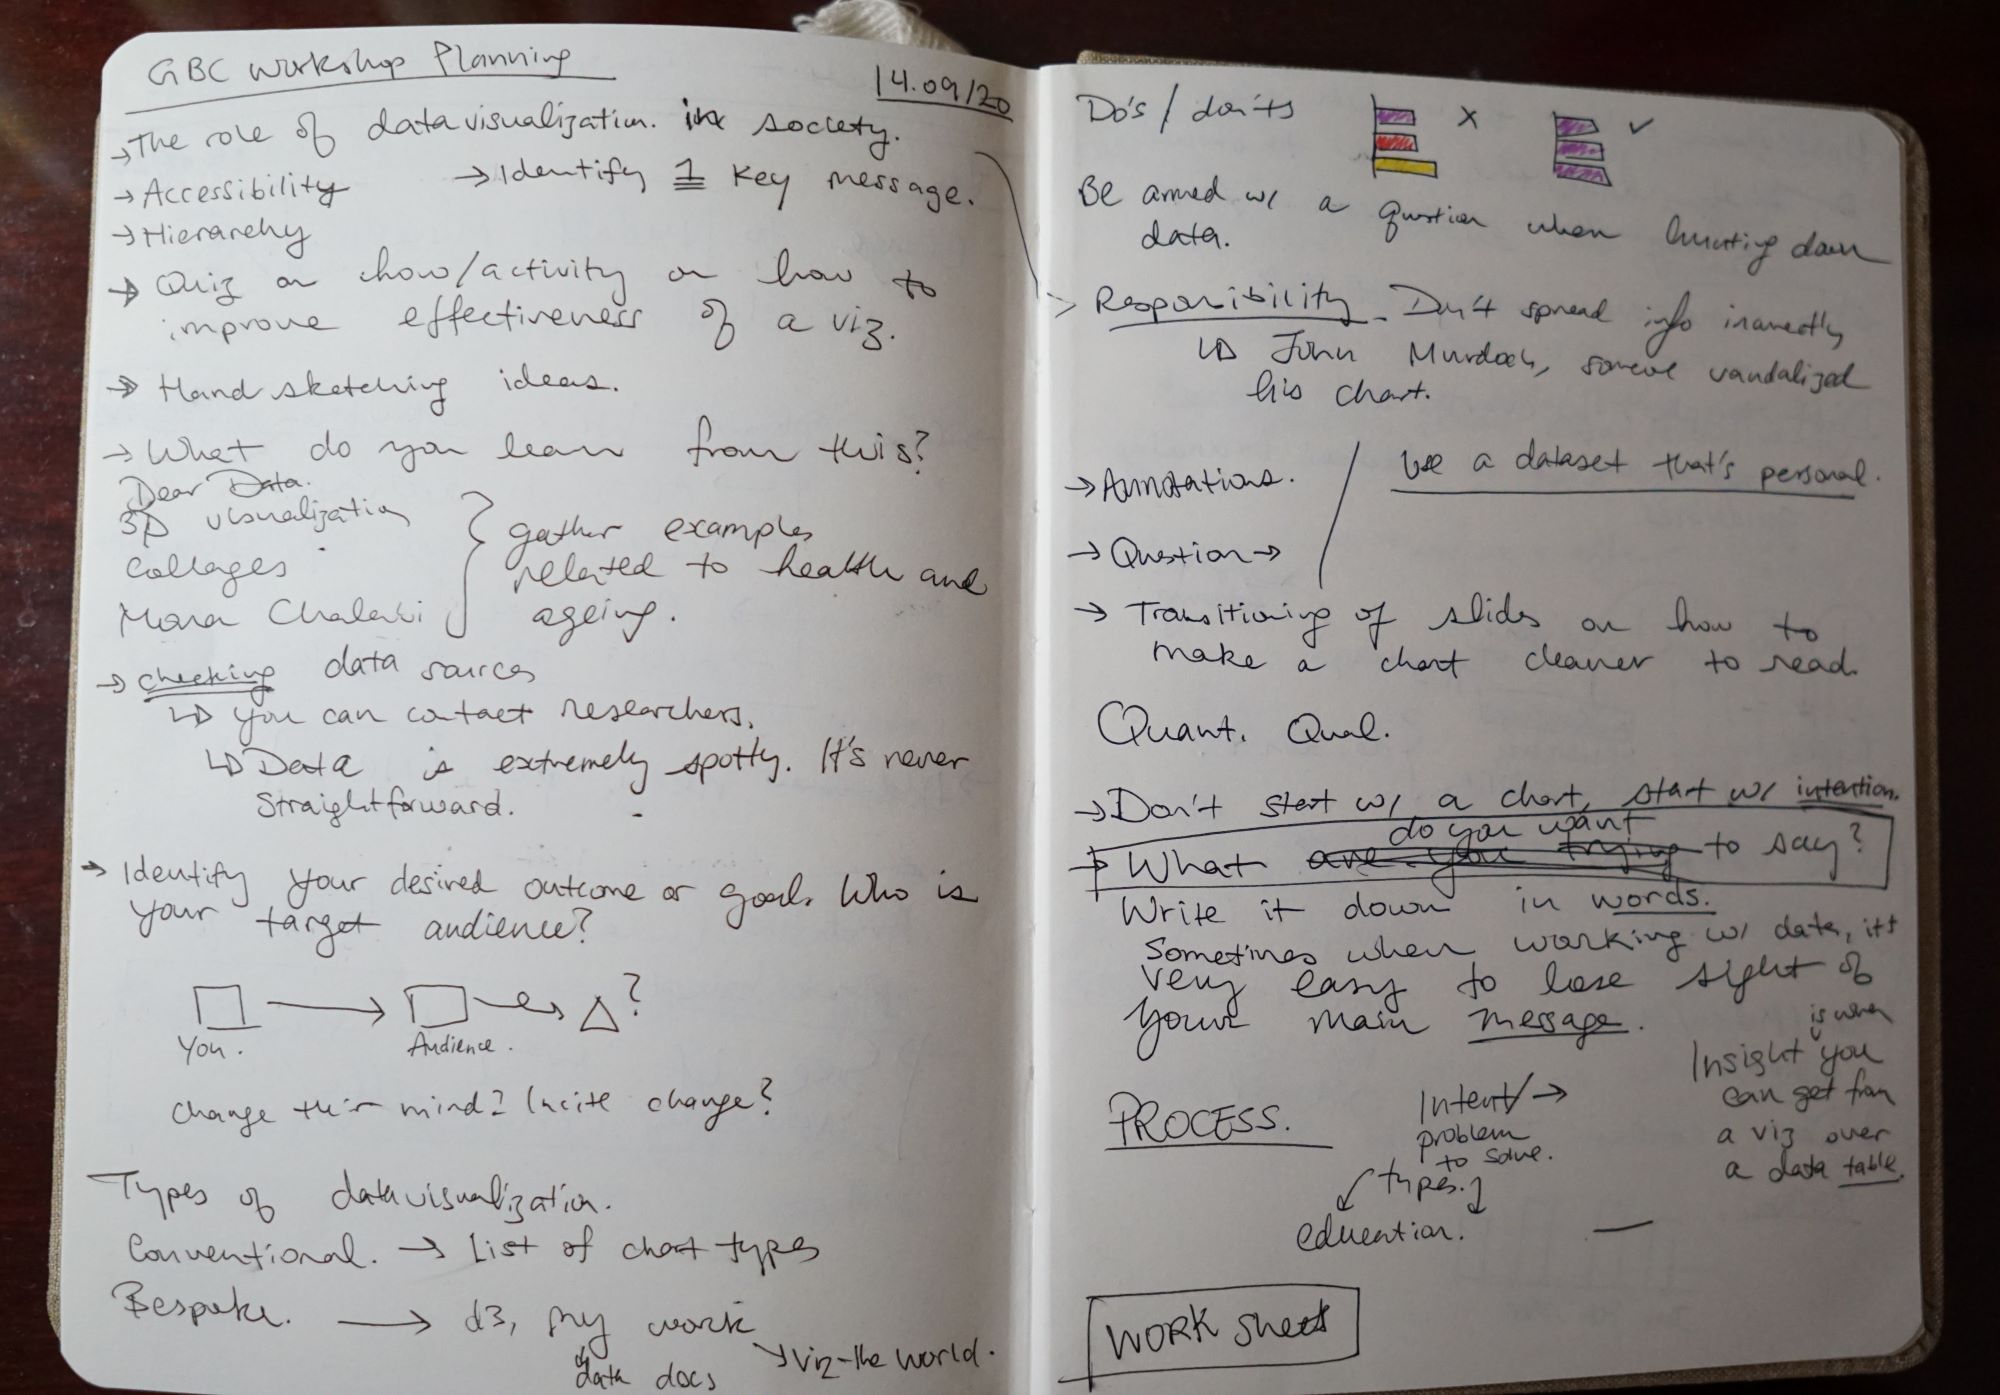 GBC Workshop Planning
14.09/20
→ The role of data visualization. in society.
→ Accessibility
→ Identify 1 key message.
→ Hierarchy
→ Quiz on how/activity on how to
improve effectiveness of a viz.
→ Hand sketching ideas.
→ What do you learn from this?
Dear Data.
3D visualization
Collages
Mona Chalabi
gather examples
related to health and
ageing.
→ checking data sources
↳ you can contact researchers.
↳ Data is extremely spotty. It's never
straightforward.
→ Identify your desired outcome or goal. Who is
your target audience?
You.
Audience.
?
Change their mind? Incite change?
Types of data visualization.
Conventional. → List of chart types
Bespoke. → d3, my work
data docs
viz-the world.
Do's / don'ts
x
✓
Be armed w/ a question when hunting down
data.
> Responsibility. Don't spread info incorrectly
↳ John Murdoch, someone vandalized
his chart.
→ Annotations.
Use a dataset that's personal.
→ Question →
→ Transitioning of slides on how to
make a chart cleaner to read.
Quant. Qual.
→ Don't start w/ a chart, start w/ intention.
do you want
→ What are you trying to say?
Write it down in words.
Sometimes when working w/ data, it's
very easy to lose sight of
your main message.
is when
Insight you
can get from
a viz over
a data table.
PROCESS.
Intent/ →
problem
to solve.
types.
education.
WORK sheet